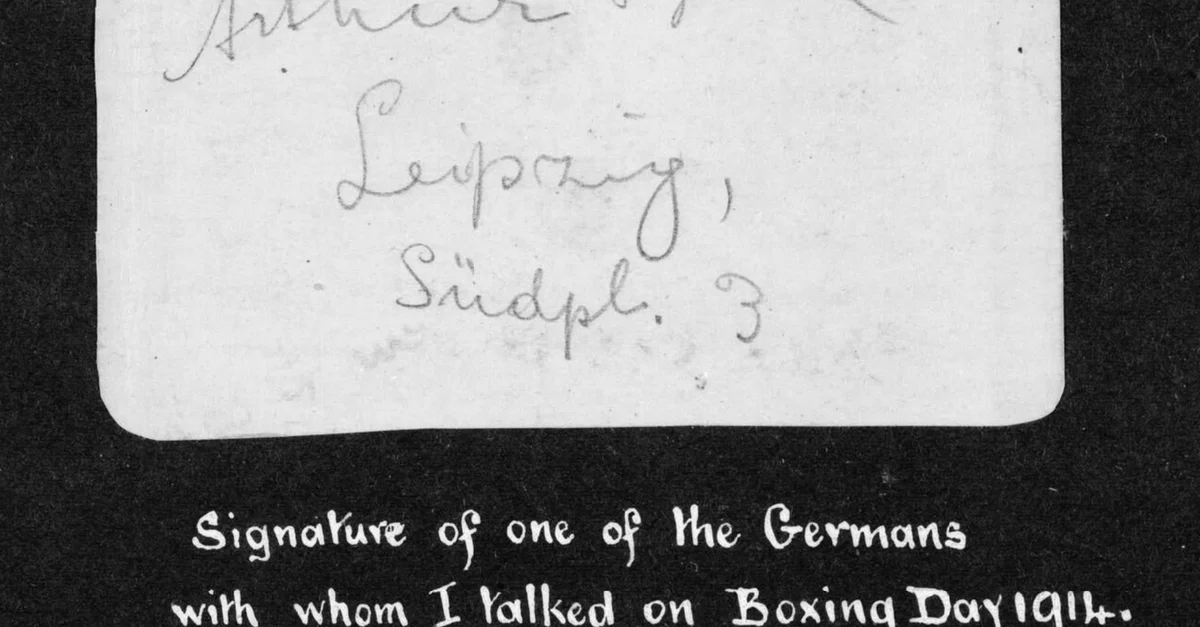 Arthur
Leipzig,
Südpl. 3
Signature of one of the Germans
with whom I talked on Boxing Day 1914.